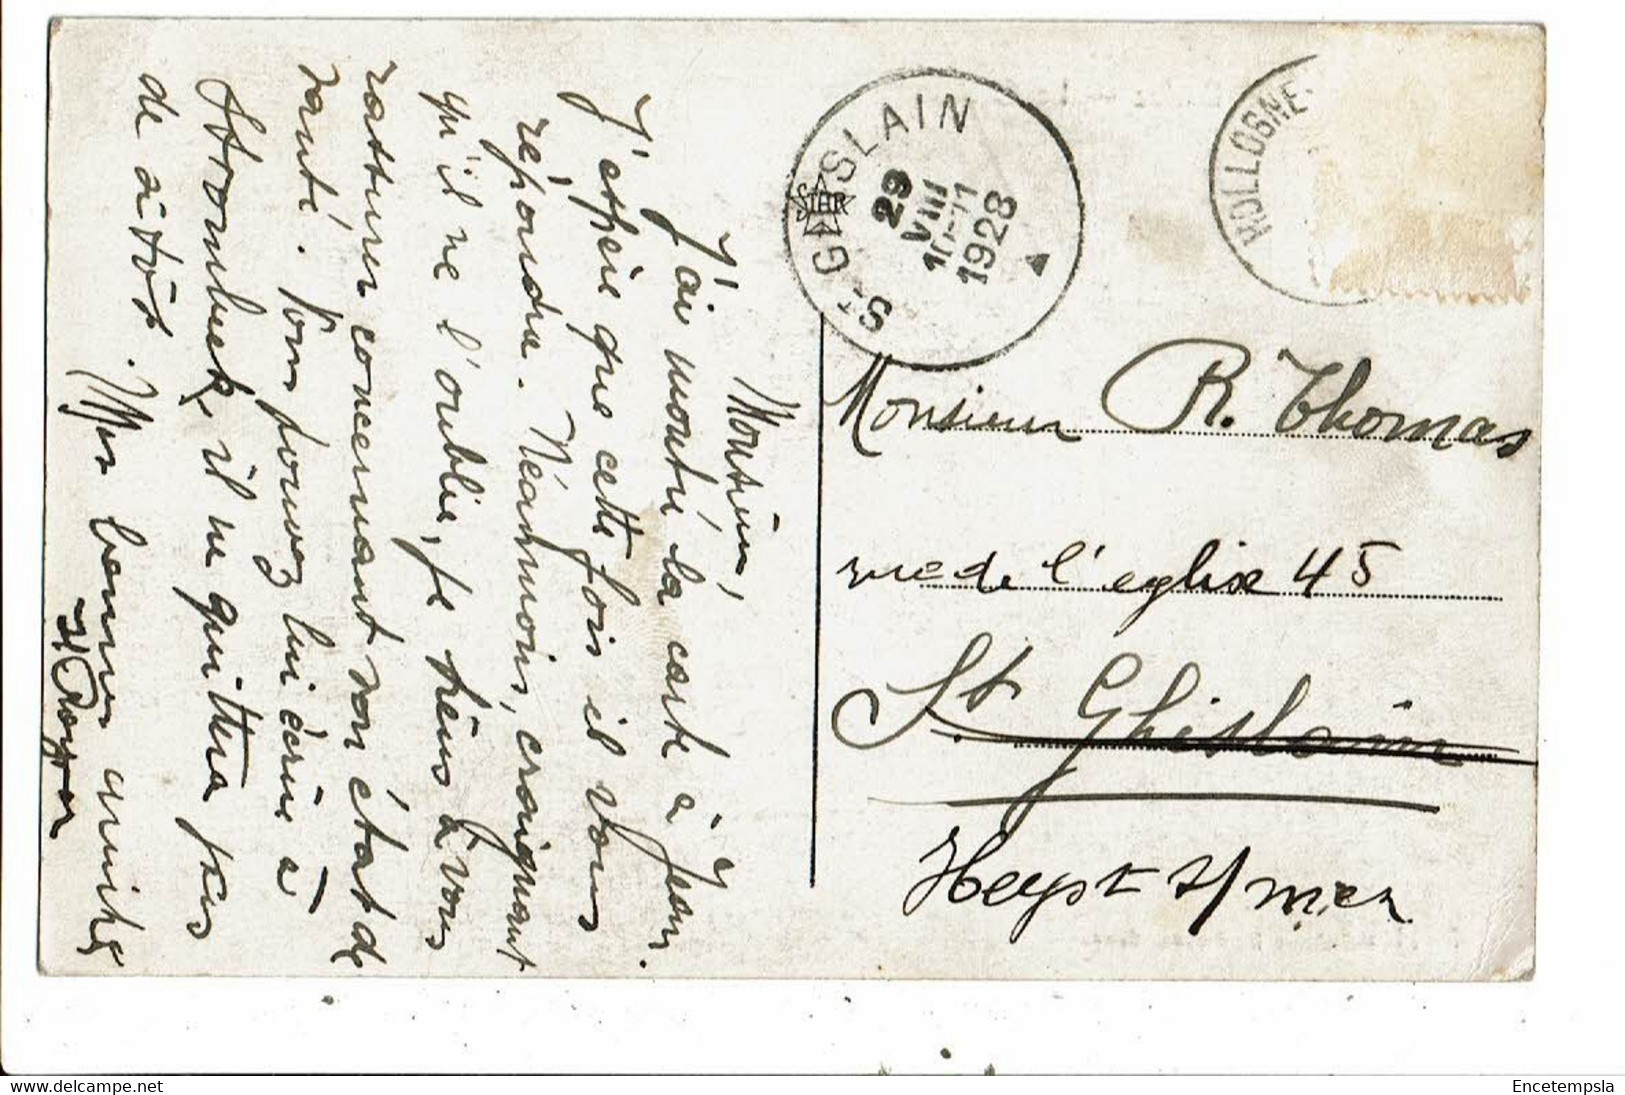 Monsieur,
J'ai montré la carte à Jean.
J'espère que cette fois il vous
répondra. Néanmoins, craignant
qu'il ne l'oublie, je tiens à vous
rassurer concernant son état de
santé. Vous pouvez lui écrire à
il ne quittera pas
de si tôt. Mes bonnes amitiés
ST-GHISLAIN
29
VIII
10-11
1928
HOLLOGNE
Monsieur R. Thomas
rue de l'eglise 45
St Ghislain
Heyst s/mer
Encetempsla
www.delcampe.net